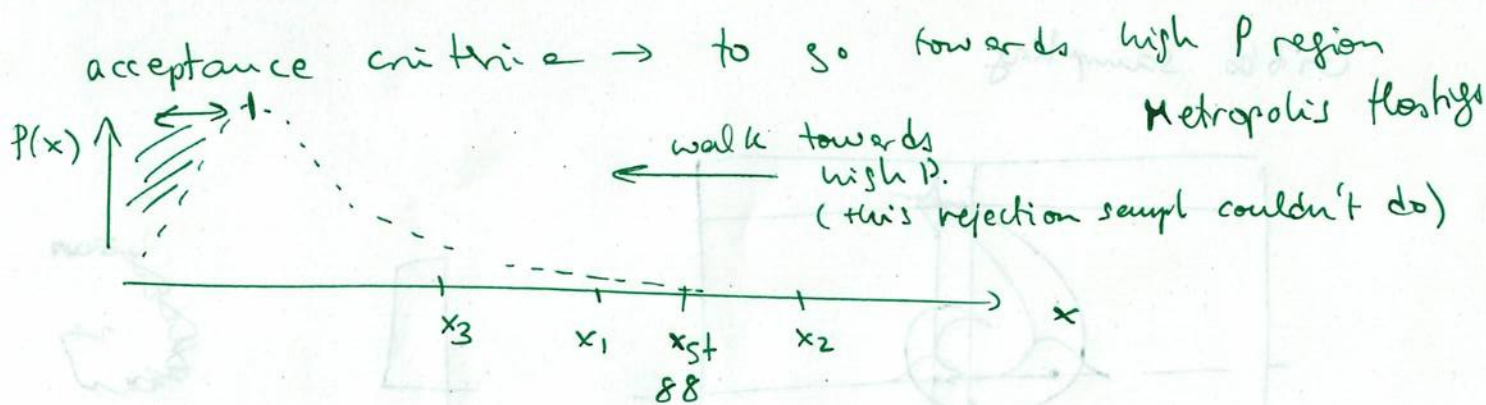 acceptance crithrie → to go towards high P region
Metropolis Hastigs
P(x)
walk towards
high P.
(this rejection sampl couldn't do)
x3 x1 xst x2 x
88